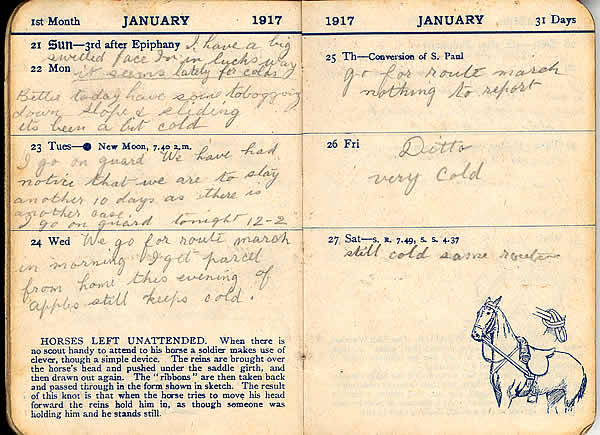 1st Month JANUARY 1917
21 Sun—3rd after Epiphany I have a big
swelled face Im in lucks way
22 Mon it seems lately for colds
Better today have some tobogging
down slopes & sliding
its been a bit cold
23 Tues—● New Moon, 7.40 a.m.
I go on guard We have had
notice that we are to stay
another 10 days as there is
another case.
I go on guard tonight 12-2
24 Wed We go for route march
in morning I get parcel
from home this evening of
apples still keeps cold.
HORSES LEFT UNATTENDED. When there is
no scout handy to attend to his horse a soldier makes use of
clever, though a simple device. The reins are brought over
the horse's head and pushed under the saddle girth, and
then drawn out again. The "ribbons" are then taken back
and passed through in the form shown in sketch. The result
of this knot is that when the horse tries to move his head
forward the reins hold him in, as though someone was
holding him and he stands still.
1917 JANUARY 31 Days
25 Th—Conversion of S. Paul
go for route march
nothing to report
26 Fri Ditto
very cold
27 Sat—S. R. 7.49, S. S. 4.37
still cold same routine